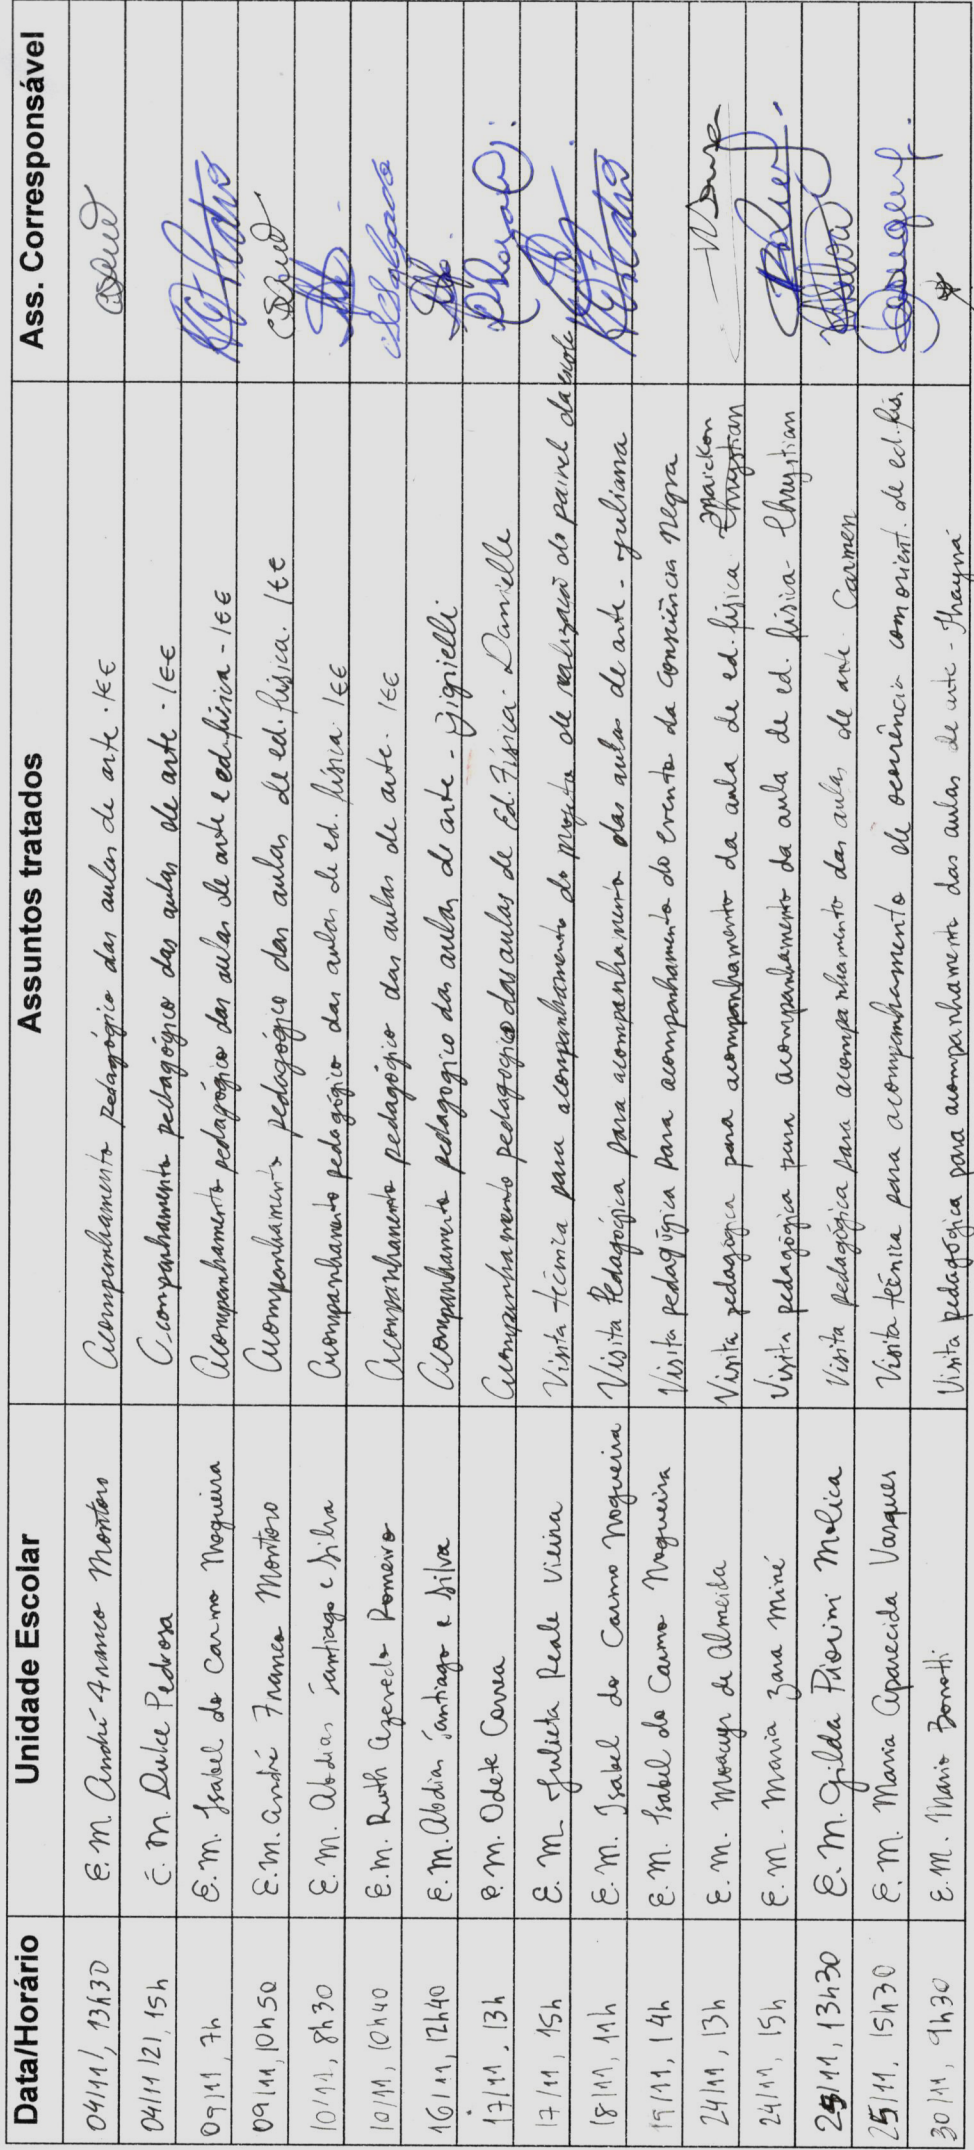 Data/Horário Unidade Escolar Assuntos tratados Ass. Corresponsável
04/11/, 13h30 E.M. André Franco Montoro Acompanhamento pedagógico das aulas de arte. IEE
04/11/21, 15h E.M. Dulce Pedrosa Acompanhamento pedagógico das aulas de arte. IEE
09/11, 7h E.M. Isabel do Carmo Nogueira Acompanhamento pedagógico das aulas de arte e ed. física - IEE
09/11, 10h50 E.M. André Franco Montoro Acompanhamento pedagógico das aulas de ed. física. IEE
10/11, 8h30 E.M. Abdias Santiago e Silva Acompanhamento pedagógico das aulas de ed. física. IEE
10/11, 10h40 E.M. Ruth Azevedo Romeiro Acompanhamento pedagógico das aulas de arte. IEE
16/11, 12h40 E.M. Abdias Santiago e Silva Acompanhamento pedagogico das aulas de arte -
17/11, 13h E.M. Odete Correa Acompanhamento pedagogico das aulas de Ed. Física - Danielle
17/11, 15h E.M. Julieta Reale Vieira Visita técnica para acompanhamento do projeto de realização do painel da escola
18/11, 11h E.M. Isabel do Carmo Nogueira Visita Pedagógica para acompanhamento das aulas de arte - Juliana
19/11, 14h E.M. Isabel do Carmo Nogueira Visita pedagógica para acompanhamento do evento da Consciência Negra
24/11, 13h E.M. Moacyr de Almeida Visita pedagógica para acompanhamento da aula de ed. física - Chrystian Maickon
24/11, 15h E.M. Maria Zara Miné Visita pedagógica para acompanhamento da aula de ed. física - Chrystian
25/11, 13h30 E.M. Gilda Piorini Molica Visita pedagógica para acompanhamento das aulas de arte - Carmen
25/11, 15h30 E.M. Maria Aparecida Vasques Visita técnica para acompanhamento de ocorrência com orient. de ed. fís.
30/11, 9h30 E.M. Mario Bonotti Visita pedagógica para acompanhamento das aulas de arte - Thayná